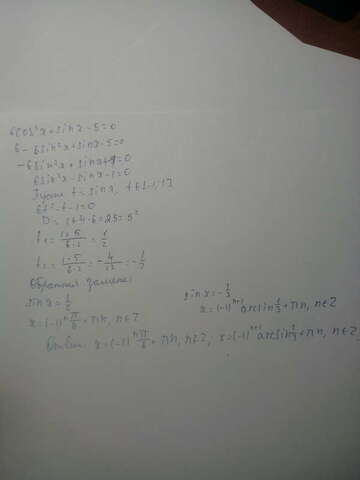 6cos²x+sinx-5=0
6-6sin²x+sinx-5=0
-6sin²x+sinx+1=0
6sin²x-sinx-1=0
Пусть t=sinx, t∈[-1;1]
6t²-t-1=0
D=1+4·6=25=5²
t₁=(1+5)/(6·2)=1/2
t₂=(1-5)/(6·2)=-4/12=-1/3
Обратная замена:
sinx=1/2
x=(-1)ⁿπ/6+πn, n∈Z
sinx=-1/3
x=(-1)ⁿ⁺¹arcsin1/3+πn, n∈Z
Ответ: x=(-1)ⁿπ/6+πn, n∈Z; x=(-1)ⁿ⁺¹arcsin1/3+πn, n∈Z.